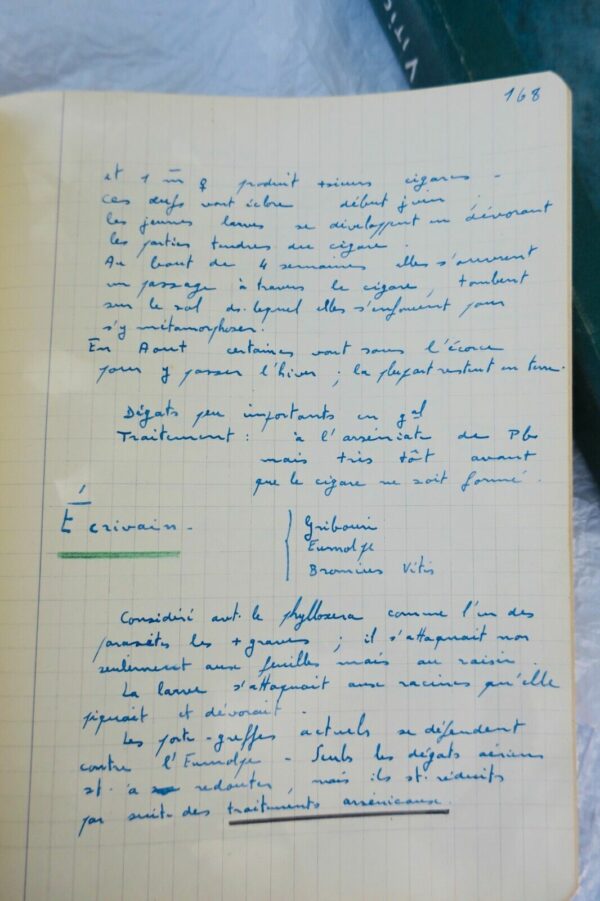 VITIC
168
et 1 m ♀ produit +sieurs cigares -
Ces œufs vont éclore début juin.
les jeunes larves se développent en dévorant
les parties tendres du cigare.
Au bout de 4 semaines elles s'ouvrent
un passage à travers le cigare, tombent
sur le sol ds. lequel elles s'enfoncent pour
s'y métamorphoser.
En Aout certaines vont sous l'écorce
pour y passer l'hiver ; la plupart restent en terre.
Dégats peu importants en gal
Traitement : à l'arséniate de Pb
mais très tôt avant
que le cigare ne soit formé.
Écrivain -
Gribouri
Eumolpe
Bromius Vitis
Considéré avt. le phylloxera comme l'un des
parasètes les + graves ; il s'attaquait non
seulement aux feuilles mais au raisin.
La larve s'attaquait aux racines qu'elle
piquait et dévorait.
Les porte-greffes actuels se défendent
contre l'Eumolpe - Seuls les dégats aériens
st. à redouter, mais ils st. réduits
par suite des traitements arsénicaux.